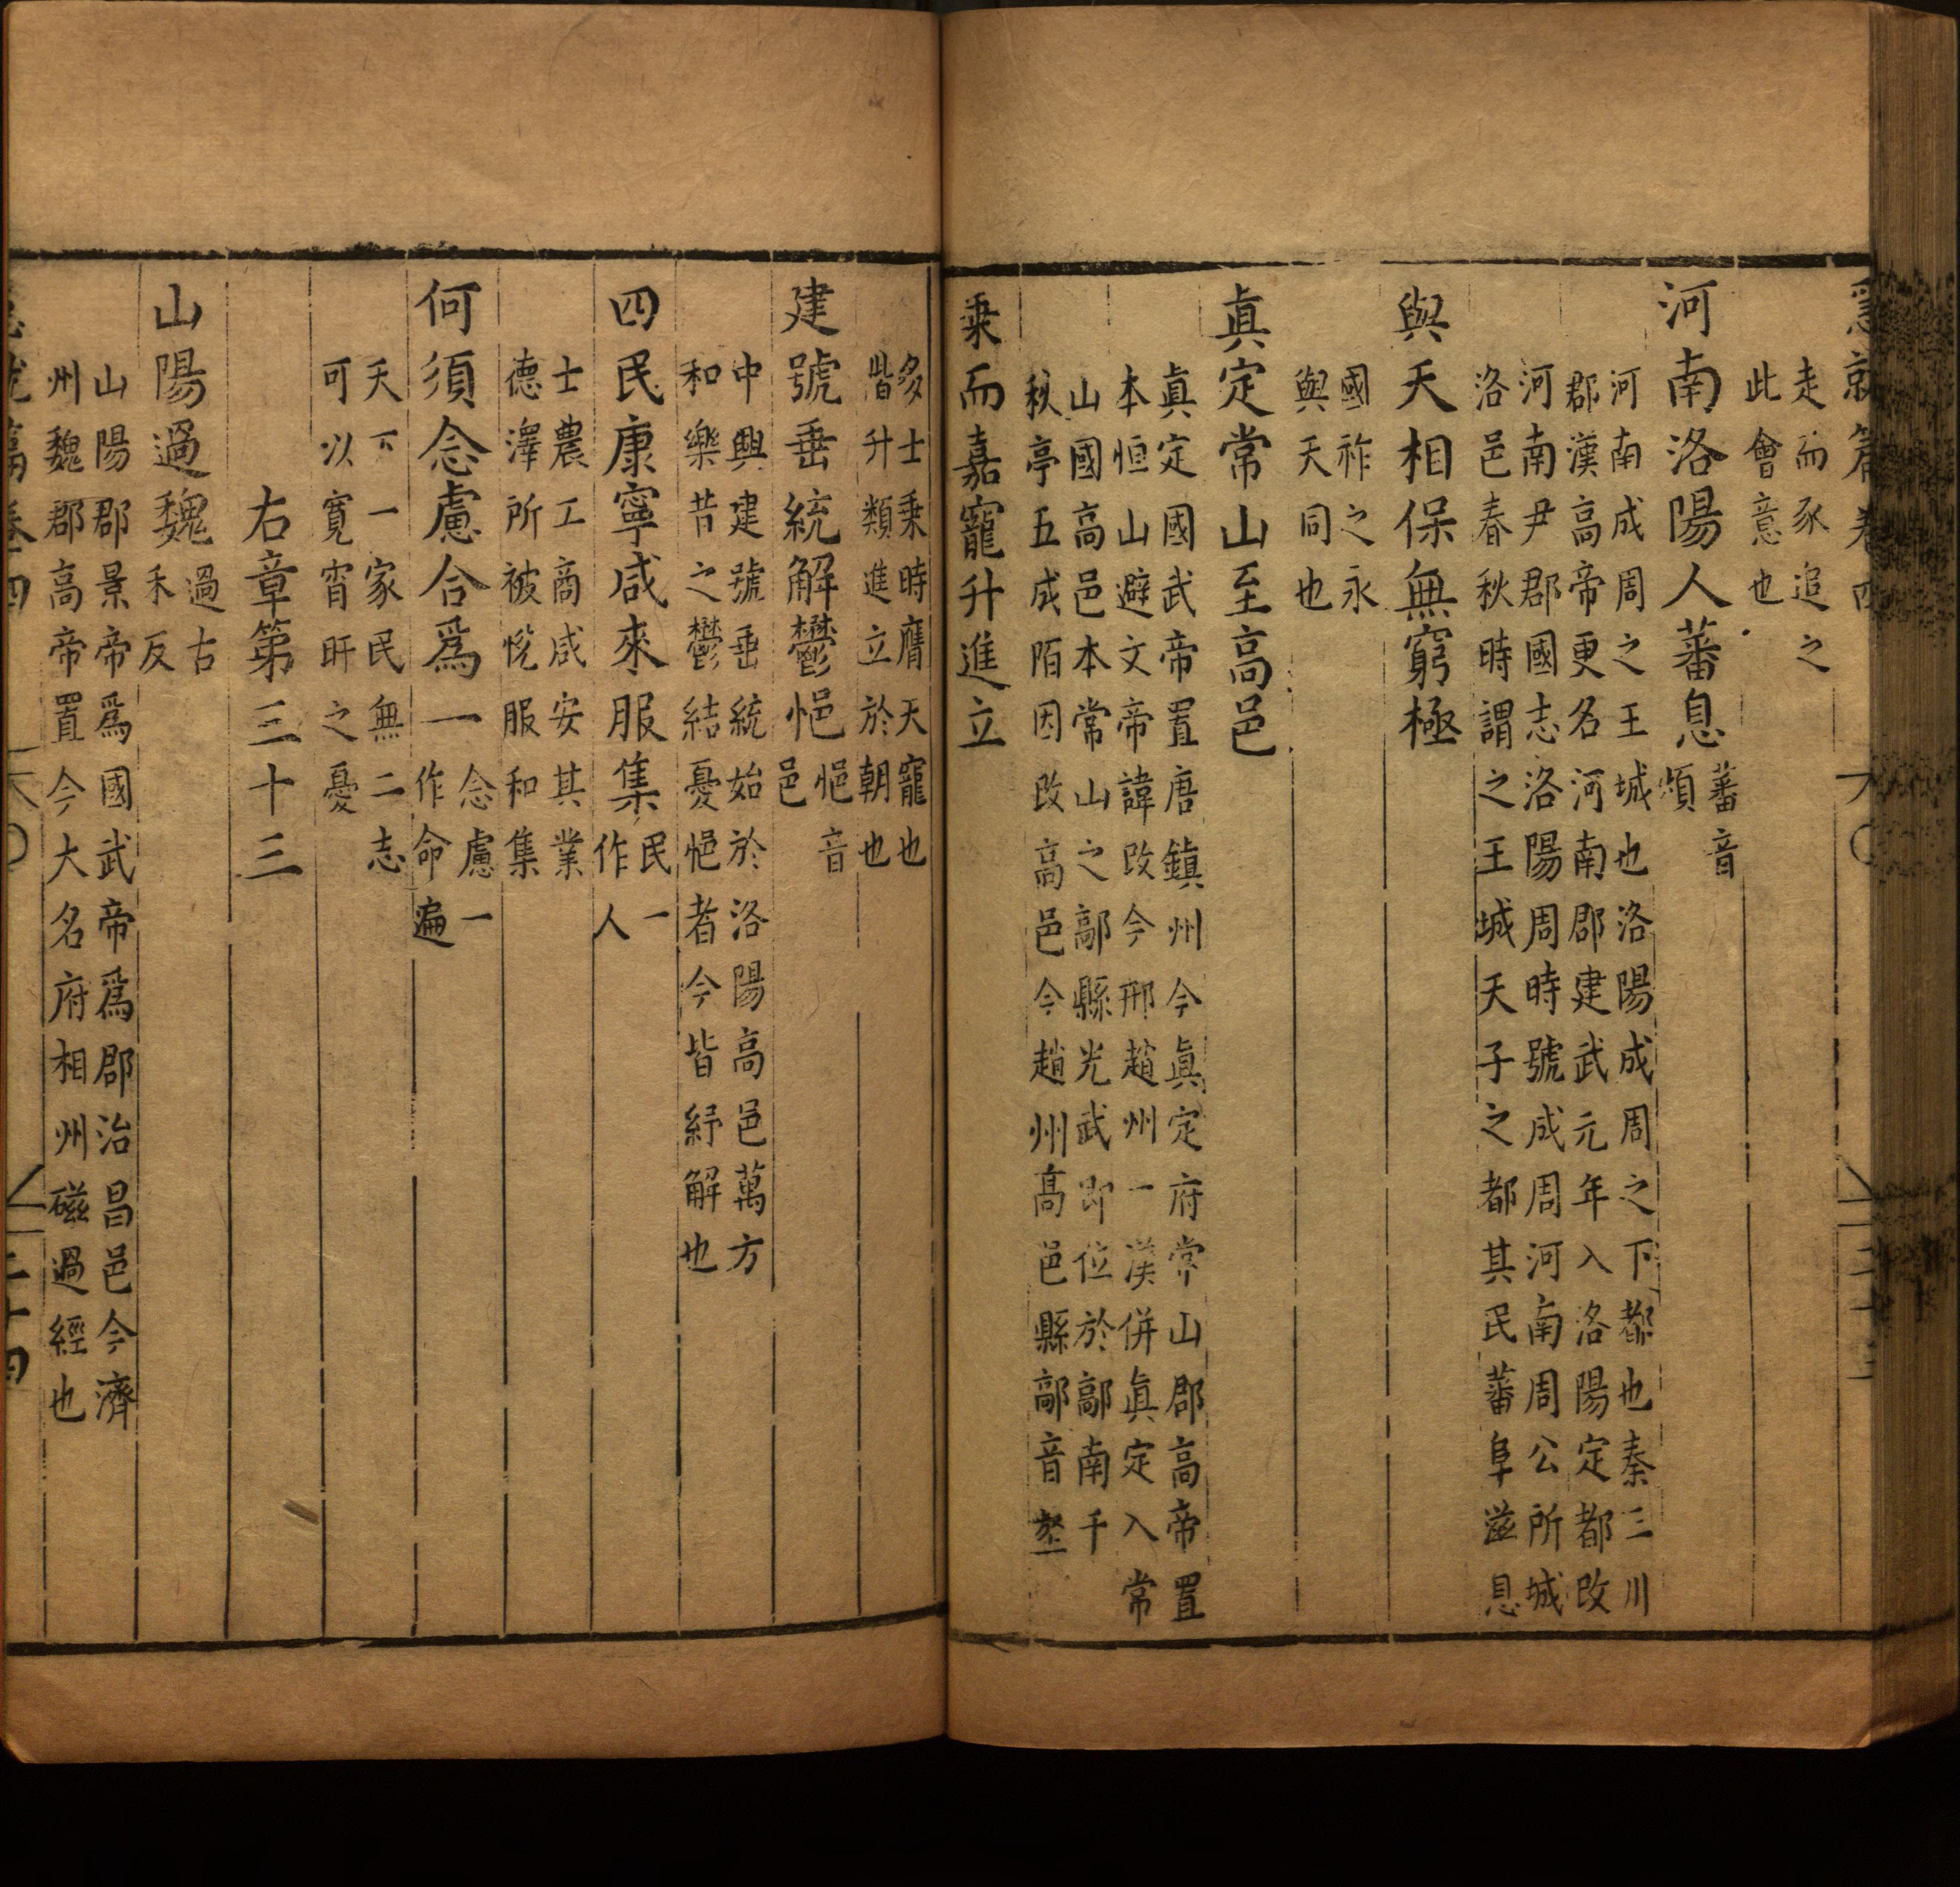 急就篇卷四
走而豕追之
此會意也
河南洛陽人蕃息
蕃音
煩
河南成周之王城也洛陽成周之下都也秦三川
郡漢高帝更名河南郡建武元年入洛陽定都改
河南尹郡國志洛陽周時號成周河南周公所城
洛邑春秋時謂之王城天子之都其民蕃阜滋息
與天相保無窮極
國祚之永
與天同也
眞定常山至高邑
眞定國武帝置唐鎮州今眞定府常山郡高帝置
本恒山避文帝諱改今邢趙州一漢併眞定入常
山國高邑本常山之鄗縣光武即位於鄗南千
秋亭五成陌因改高邑今趙州高邑縣鄗音壑
乗而嘉寵升進立
多士乗時膺天寵也
皆升類進立於朝也
建號垂統解鬱悒
悒音
邑
中興建號垂統始於洛陽高邑萬方
和樂昔之鬱結憂悒者今皆紓解也
四民康寧咸來服集
民一
作人
士農工商咸安其業
德澤所被悅服和集
何須念慮合爲一
念慮一
作命遍
天下一家民無二志
可以寬宵旰之憂
右章第三十三
山陽過魏
過古
禾反
山陽郡景帝爲國武帝爲郡治昌邑今濟
州魏郡高帝置今大名府相州磁過經也